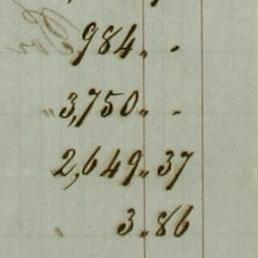 984 〃 -
3,750 〃 -
2,649 〃 37
3 〃 86